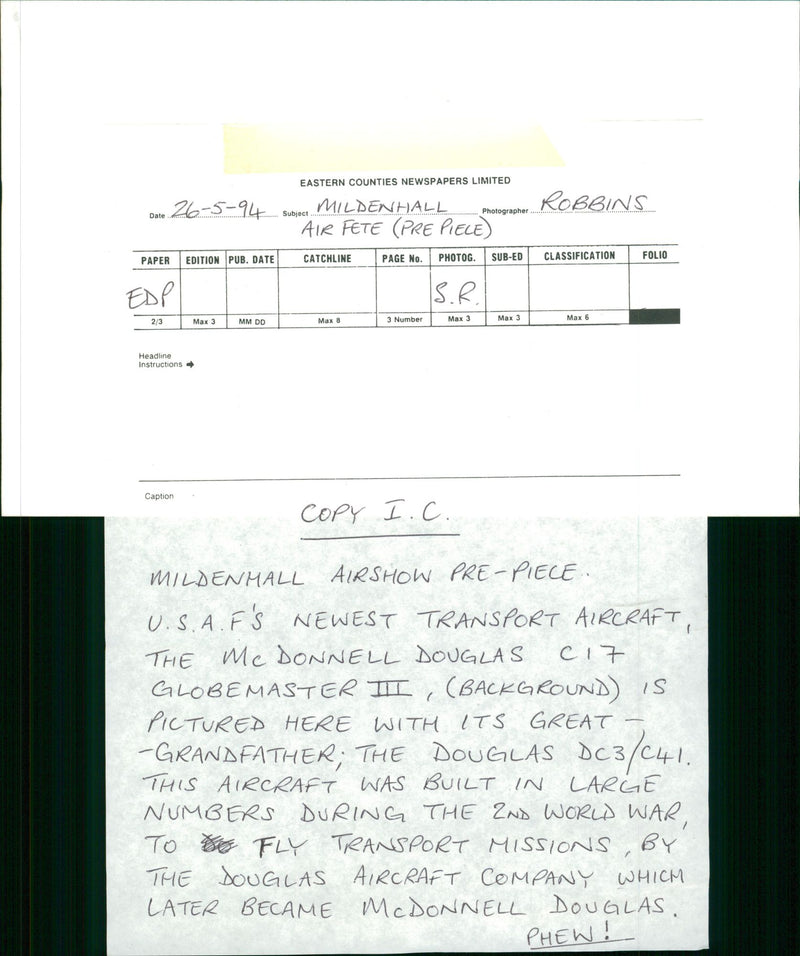 EASTERN COUNTIES NEWSPAPERS LIMITED
Date 26-5-94 Subject MILDENHALL Photographer ROBBINS
AIR FETE (PRE PIECE)
PAPER EDITION PUB. DATE CATCHLINE PAGE No. PHOTOG. SUB-ED CLASSIFICATION FOLIO
EDP S.R.
2/3 Max 3 MM DD Max 8 3 Number Max 3 Max 3 Max 6
Headline
Instructions ➔
Caption
COPY I.C.
MILDENHALL AIRSHOW PRE-PIECE.
U.S.A.F'S NEWEST TRANSPORT AIRCRAFT,
THE McDONNELL DOUGLAS C17
GLOBEMASTER III, (BACKGROUND) IS
PICTURED HERE WITH ITS GREAT -
-GRANDFATHER; THE DOUGLAS DC3/C41.
THIS AIRCRAFT WAS BUILT IN LARGE
NUMBERS DURING THE 2ND WORLD WAR,
TO FLY TRANSPORT MISSIONS, BY
THE DOUGLAS AIRCRAFT COMPANY WHICH
LATER BECAME McDONNELL DOUGLAS.
PHEW!